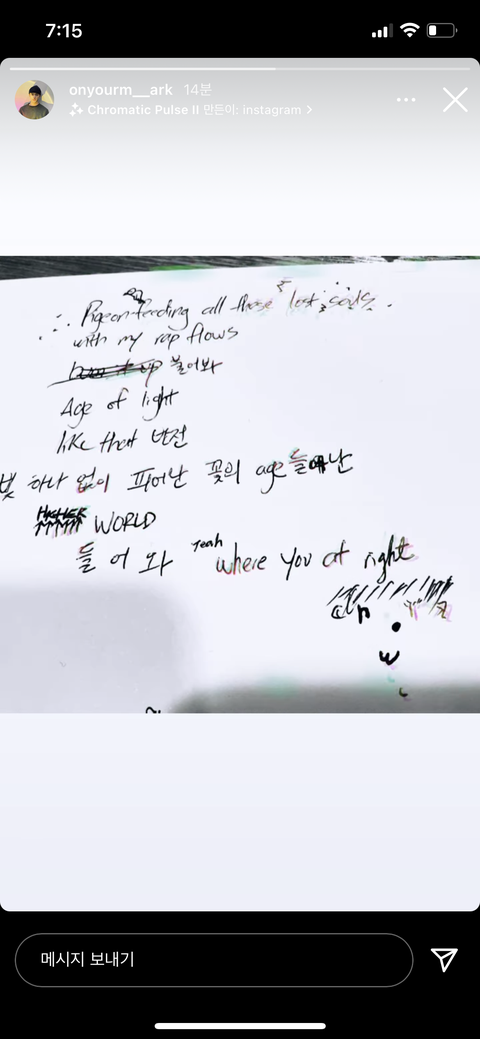 7:15
onyourm__ark 14분
Chromatic Pulse II 만든이: instagram >
Pigeon feeding all these lost souls.
with my rap flows
불어와
Age of light
like that 반전
빛 하나 없이 피어난 꽃의 age 들 난
WORLD
들어와 Yeah where you at right
메시지 보내기